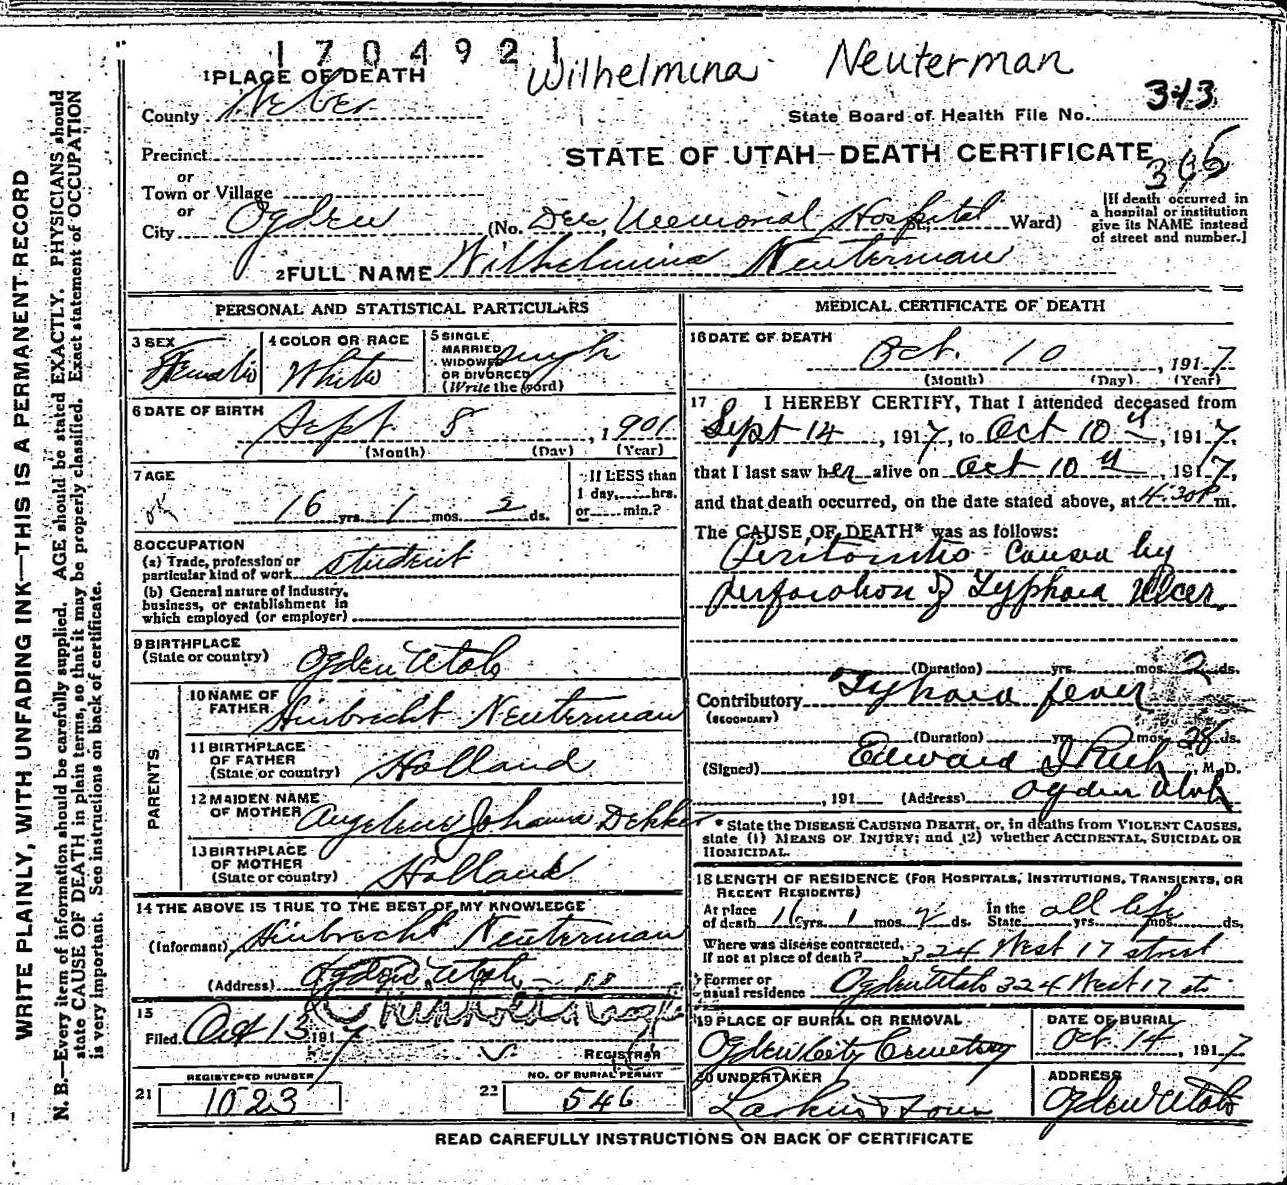 1704921
Wilhelmina Neuterman
1 PLACE OF DEATH
County Weber
State Board of Health File No. 343
Precinct
STATE OF UTAH—DEATH CERTIFICATE
366
or
Town or Village
or
City Ogden (No. Dee Memorial Hospital St., Ward)
[If death occurred in
a hospital or institution
give its NAME instead
of street and number.]
2 FULL NAME Wilhelmina Neuterman
PERSONAL AND STATISTICAL PARTICULARS
3 SEX
Female
4 COLOR OR RACE
White
5 SINGLE
MARRIED
WIDOWED
OR DIVORCED
(Write the word)
single
6 DATE OF BIRTH
Sept 8, 1901
(Month) (Day) (Year)
7 AGE
ok
16 yrs. 1 mos. 2 ds.
If LESS than
1 day, hrs.
or min.?
8 OCCUPATION
(a) Trade, profession or
particular kind of work student
(b) General nature of industry,
business, or establishment in
which employed (or employer)
9 BIRTHPLACE
(State or country) Ogden Utah
PARENTS
10 NAME OF
FATHER Hinbrecht Neuterman
11 BIRTHPLACE
OF FATHER
(State or country) Holland
12 MAIDEN NAME
OF MOTHER Angelene Johanna Dekker
13 BIRTHPLACE
OF MOTHER
(State or country) Holland
14 THE ABOVE IS TRUE TO THE BEST OF MY KNOWLEDGE
(Informant) Hinbrecht Neuterman
(Address) Ogden, Utah
15
Filed Oct 13 1917
REGISTRAR
REGISTERED NUMBER
21 1023
NO. OF BURIAL PERMIT
22 546
MEDICAL CERTIFICATE OF DEATH
16 DATE OF DEATH
Oct. 10, 1917
(Month) (Day) (Year)
17 I HEREBY CERTIFY, That I attended deceased from
Sept 14, 1917, to Oct 10th, 1917,
that I last saw her alive on Oct 10th, 1917,
and that death occurred, on the date stated above, at 4.30P m.
The CAUSE OF DEATH* was as follows:
Peritonitis caused by
perforation of Typhoid Ulcer
(Duration) yrs. mos. 2 ds.
Contributory Typhoid fever
(SECONDARY)
(Duration) yrs. mos. 28 ds.
(Signed) Edward I Rich, M.D.
, 191 (Address) Ogden Utah
* State the DISEASE CAUSING DEATH, or, in deaths from VIOLENT CAUSES,
state (1) MEANS OF INJURY; and (2) whether ACCIDENTAL, SUICIDAL OR
HOMICIDAL.
18 LENGTH OF RESIDENCE (FOR HOSPITALS, INSTITUTIONS, TRANSIENTS, OR
RECENT RESIDENTS)
At place
of death 16 yrs. 1 mos. 2 ds.
In the
State all life yrs. mos. ds.
Where was disease contracted,
If not at place of death? 324 West 17 street
Former or
usual residence Ogden Utah 324 West 17 st
19 PLACE OF BURIAL OR REMOVAL
Ogden City Cemetery
DATE OF BURIAL
Oct. 14, 1917
20 UNDERTAKER
Larkin & Sons
ADDRESS
Ogden Utah
READ CAREFULLY INSTRUCTIONS ON BACK OF CERTIFICATE
WRITE PLAINLY, WITH UNFADING INK—THIS IS A PERMANENT RECORD
N. B.—Every item of information should be carefully supplied. AGE should be stated EXACTLY. PHYSICIANS should
state CAUSE OF DEATH in plain terms, so that it may be properly classified. Exact statement of OCCUPATION
is very important. See instructions on back of certificate.